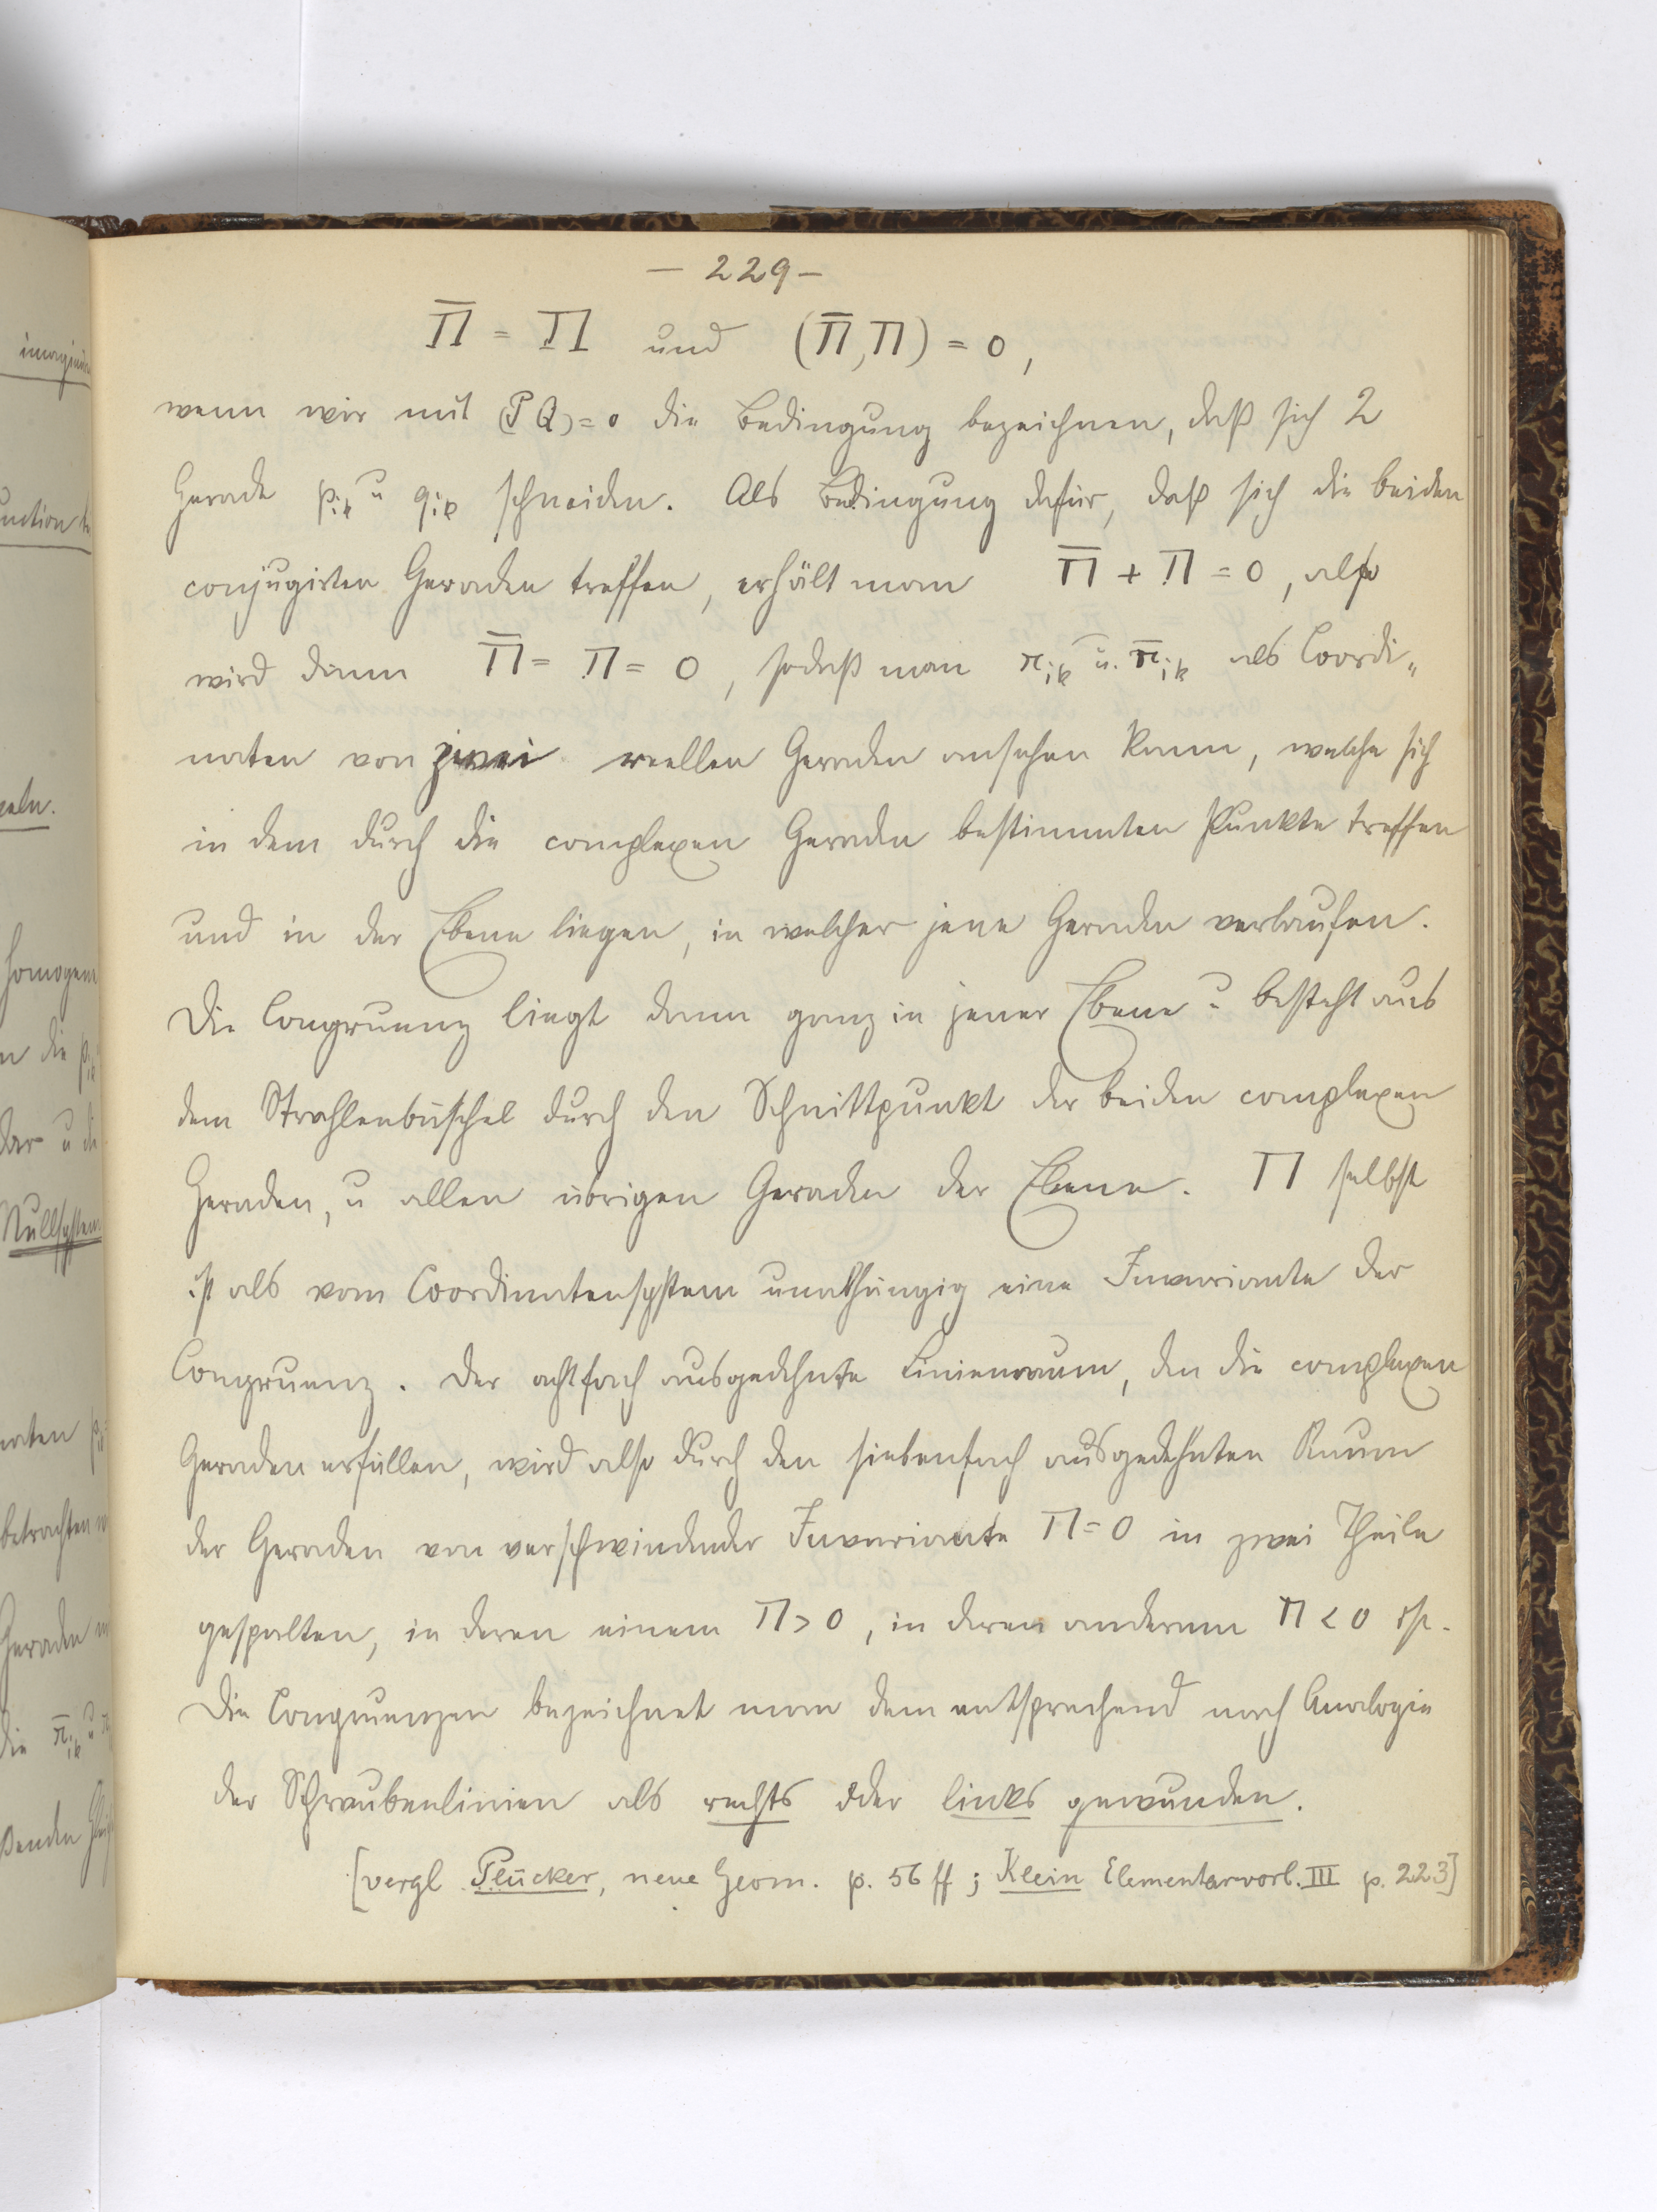 — 229 —
Π̅ = Π und (Π̅, Π) = 0,
wenn wir mit (P Q) = 0 die Bedingung bezeichnen, daß sich 2
Gerade p_ik u q_ik schneiden. Als Bedingung dafür, daß sich die beiden
conjugirten Geraden treffen, erhält man Π̅ + Π = 0, also
wird dann Π̅ = Π = 0, sodaß man π_ik u. π̅_ik als Coordi„
naten von zwei reellen Geraden ansehen kann, welche sich
in dem durch die complexen Geraden bestimmten Punkte treffen
und in der Ebene liegen, in welcher jene Geraden verlaufen.
Die Congruenz liegt dann ganz in jener Ebene u besteht aus
dem Strahlenbüschel durch den Schnittpunkt der beiden complexen
Geraden, u allen übrigen Geraden der Ebene. Π selbst
ist als vom Coordinatensystem unabhängig eine Invariante der
Congruenz. Der achtfach ausgedehnte Linienraum, den die complexen
Geraden erfüllen, wird also durch den siebenfach ausgedehnten Raum
der Geraden von verschwindender Invariante Π = 0 in zwei Theile
gespalten, in deren einem Π > 0, in deren anderem Π < 0 ist.
Die Congruenzen bezeichnet man dem entsprechend nach Analogie
der Schraubenlinien als rechts oder links gewunden.
[vergl Plücker, neue Geom. p. 56 ff; Klein Elementarvorl. III p. 223]